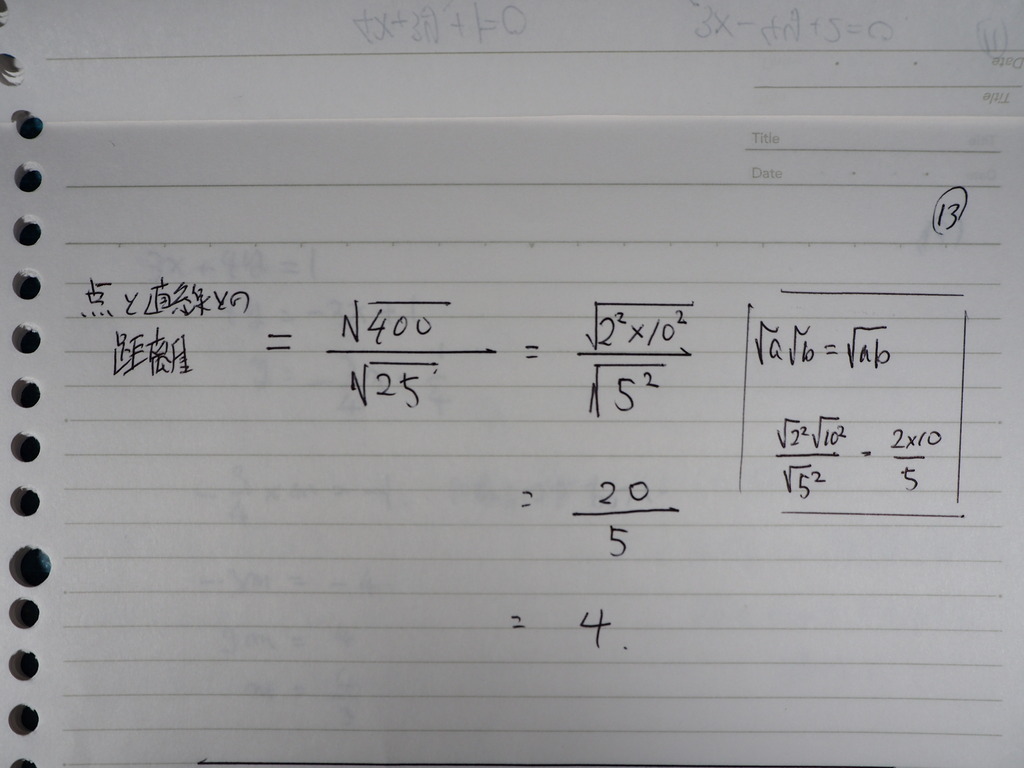 Title
Date
⑬
点と直線との
距離 = √400 / √25 = √(2² × 10²) / √(5²)
= 20 / 5
= 4.
√a √b = √ab
√2² √10² / √5² = 2×10 / 5
Date
Title